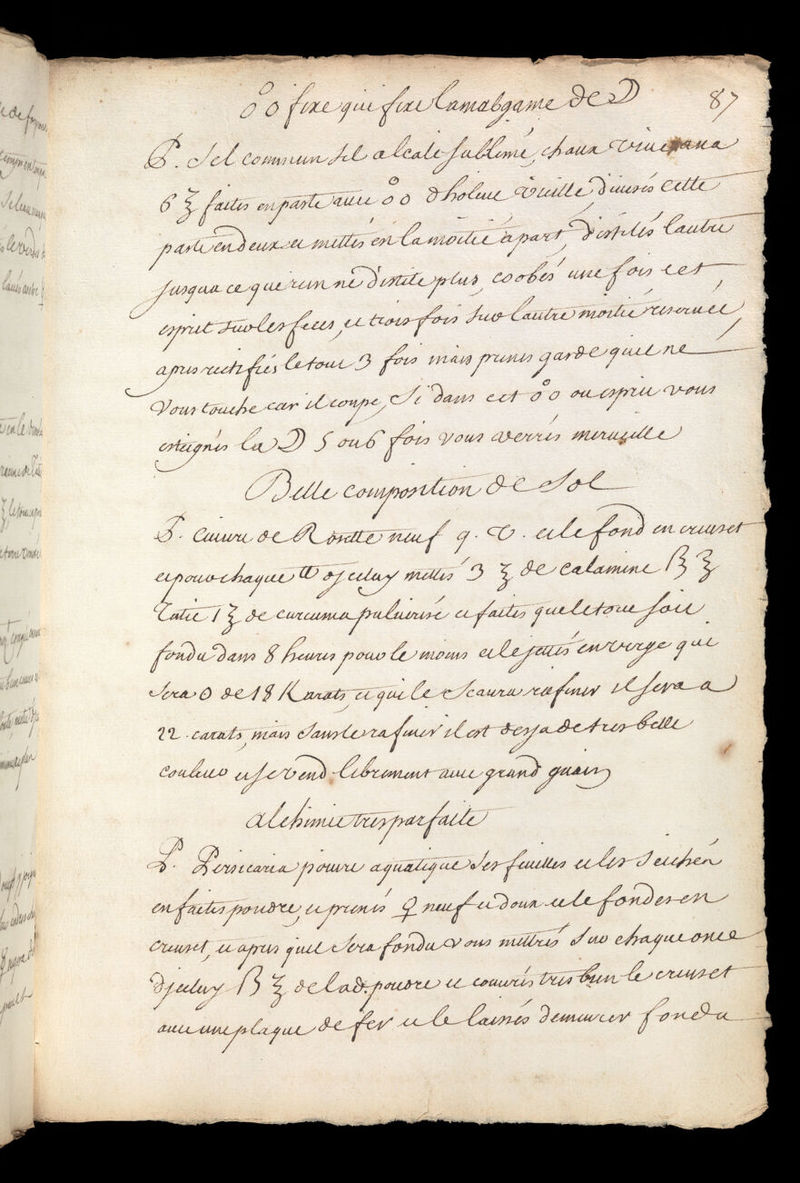 fixe qui fixe lamalgame de ☽
87
P. Sel commun sel alcali sublimé, chaux vive ana
6 ℥ faites en paste avec dholive vieille, divisés cette
paste en deux et mettés en la moitié apart, distilés lautre
jusqua ce que rien ne distile plus, coobés une fois cet
esprit sur les feces, et trois fois sur lautre moitié reservée,
apres rectifiés le tout 3 fois mais prenes garde quil ne
vous touche car il coupe, Si dans cet ou esprit vous
esteignés la ☽ 5 ou 6 fois vous verrés merveille
Belle composition de Sol
P. Cuivre de Rosette neuf q. v. et le fond en creuset
et pour chaque ℔ djceluy mettés 3 ℥ de calamine ß ℥
Tutie 1 ℥ de curcuma pulverisé et faites que le tout soit
fondu dans 8 heures pour le moins et le jettés en verge qui
sera O de 18 Karats, et qui le scaura rafiner il sera a
22 carats, mais sans le rafiner il est desja de tres belle
couleur et se vend librement avec grand guain
alchimie tres parfaite
P. Persicaria poivre aquatique ses feuilles et les seichés
en faites poudre, et prenés ♀ neuf et doux et le fondes en
creuset, et apres quil sera fondu vous mettrés sur chaque once
djceluy ß ℥ de lad. poudre et couvrés tres bien le creuset
avec une plaque de fer et le laissés demeurer fondu